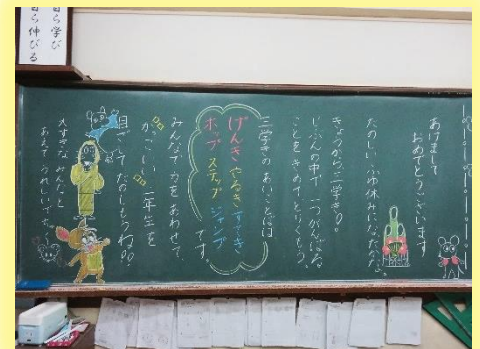 あけまして
おめでとうございます
たのしい ふゆ休みになったかな。
きょうから三学き!!
じぶんの中で 一つがんばる
ことをきめてとりくもう。
三学きの あいことばは
げんき やるき すてき
ホップ ステップ ジャンプ
です。
みんなで 力をあわせて
かっこいい 一年生を
目ざして たのしもうね!!
大すきな みんなと
あえて うれしいです。
自ら学び
自ら伸びる